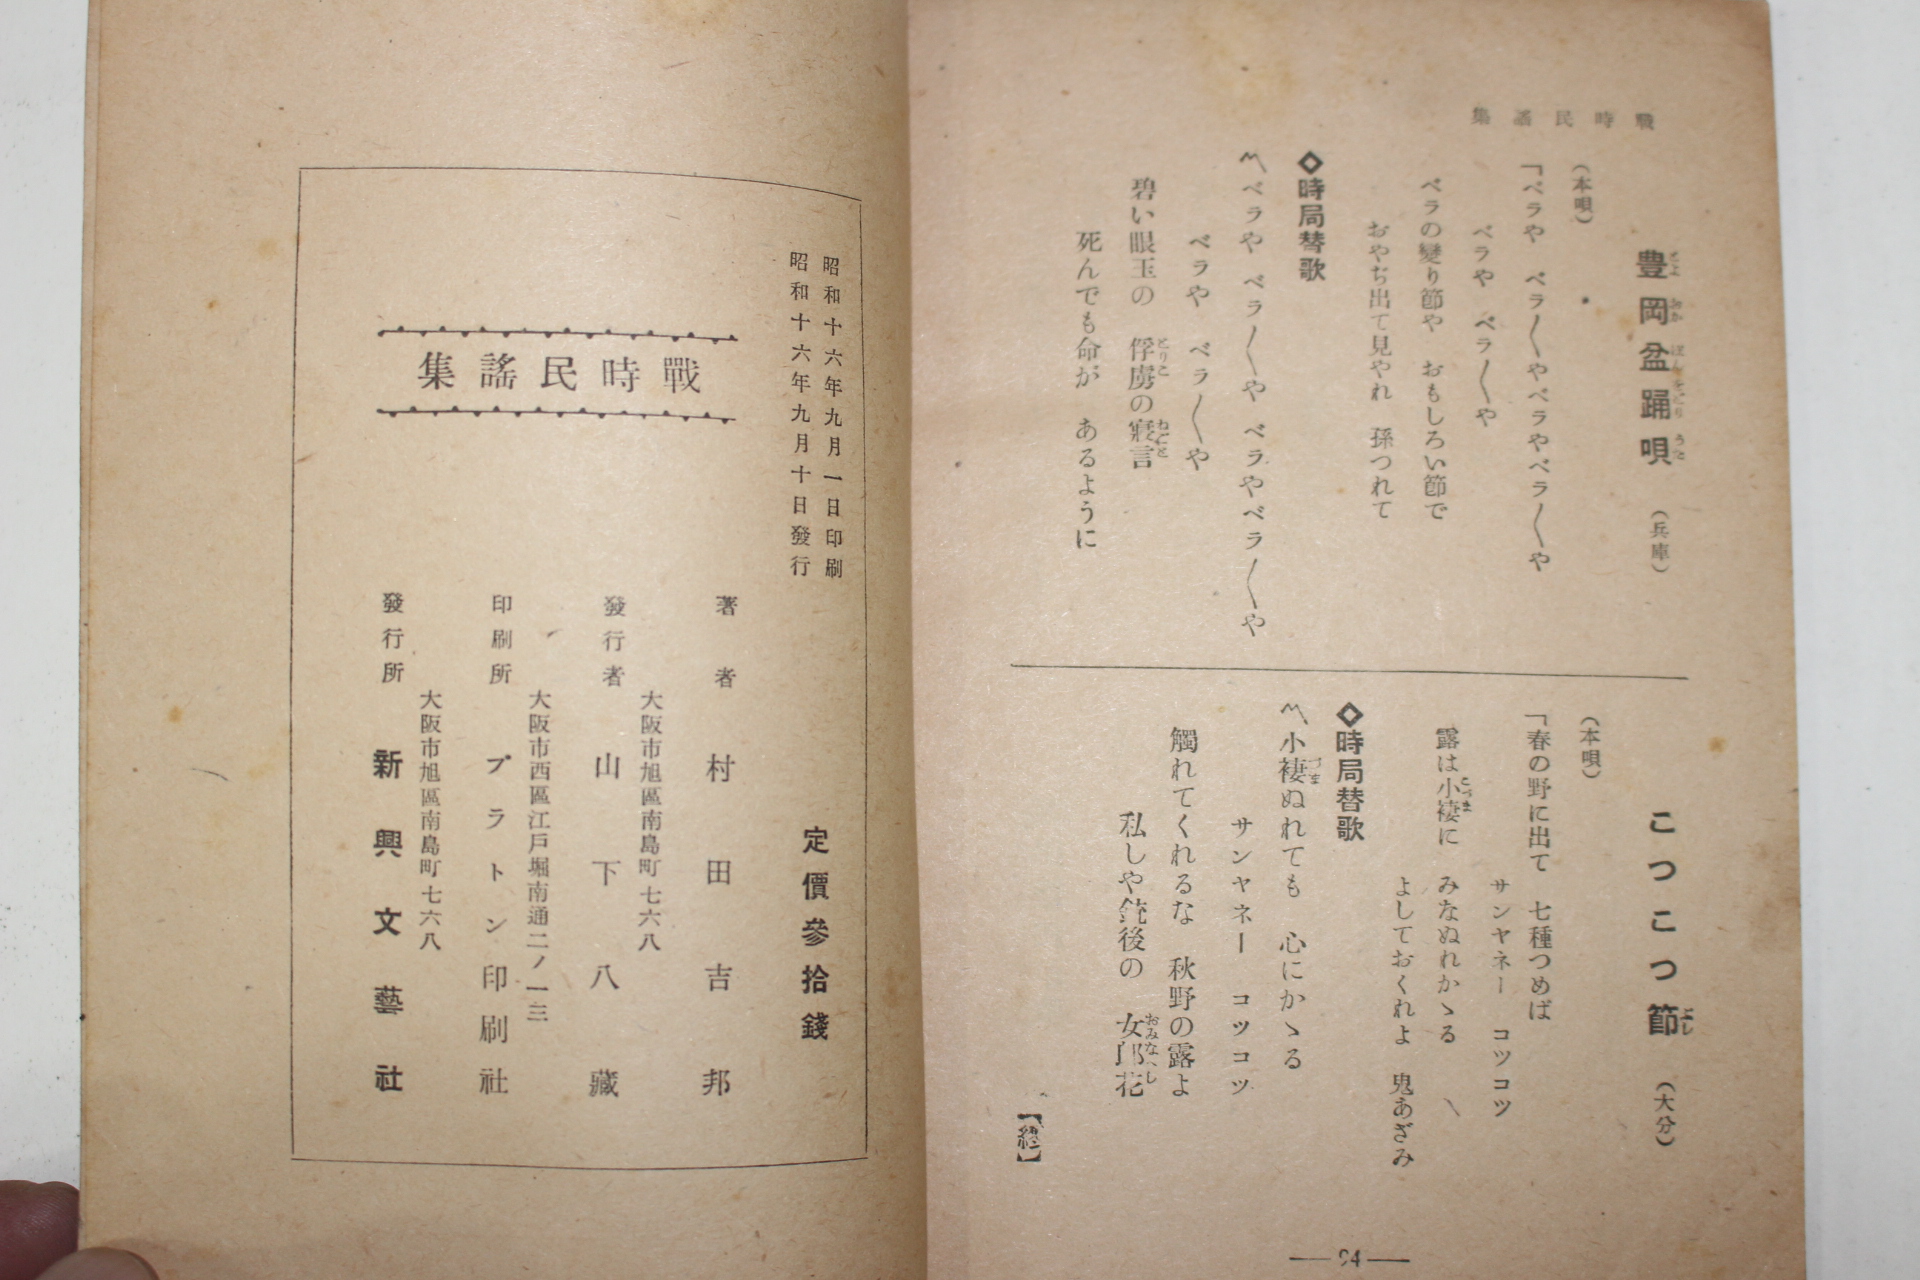 戰時民謠集
豊岡盆踊唄（兵庫）
（本唄）
「ベラや　ベラ〱やベラやベラ〱や
ベラや　ベラ〱や
ベラの變り節や　おもしろい節で
おやぢ出て見やれ　孫つれて
◇時局替歌
〽ベラや　ベラ〱や　ベラやベラ〱や
ベラや　ベラ〱や
碧い眼玉の　俘虜の寢言
死んでも命が　あるように
こつこつ節（大分）
（本唄）
「春の野に出て　七種つめば
サンヤネー　コツコツ
露は小褄に　みなぬれかゝる
よしておくれよ　鬼あざみ
◇時局替歌
〽小褄ぬれても　心にかゝる
サンヤネー　コツコツ
觸れてくれるな　秋野の露よ
私しや銃後の　女郎花
【終】
— 94 —
昭和十六年九月一日印刷
昭和十六年九月十日發行
戰時民謠集
定價參拾錢
著者　村田吉邦
大阪市旭區南島町七六八
發行者　山下八藏
大阪市西區江戸堀南通二ノ一三
印刷所　プラトン印刷社
大阪市旭區南島町七六八
發行所　新興文藝社